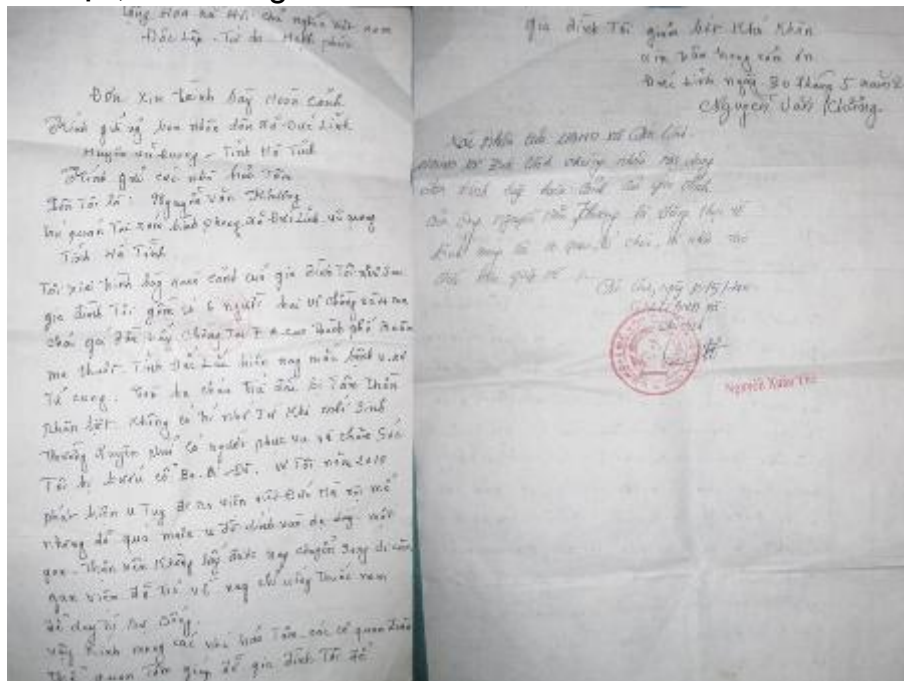 Cộng hòa xã hội chủ nghĩa việt nam
Độc lập - Tự do Hạnh phúc
Đơn xin trình bày hoàn cảnh
Kính gửi ủy ban nhân dân xã Đức Lĩnh
Huyện vũ quang - Tỉnh Hà Tĩnh
Kính gửi các nhà hảo Tâm
Tên Tôi là: Nguyễn văn Khường
xã Đức Lĩnh vũ quang
Tỉnh Hà Tĩnh
Tôi xin trình bày hoàn cảnh của gia đình Tôi như sau
gia đình Tôi gồm có 6 người hai vợ chồng
cháu gái đầu lấy chồng Tại Thành phố Buôn
ma thuột Tỉnh Đắc Lắc hiện nay mắc bệnh u xơ
Tử cung. bị Tâm Thần
phân liệt không có Tư
Thường xuyên phải có người phục vụ và chăm Sóc
Tôi bị bướu cổ vợ Tôi năm 2010
phát hiện u Tụy đi ra viện việt Đức Hà nội mổ
nhưng để quá muộn u đã dính vào dạ dày mật
gan - Thận nên không lấy được nay chuyển Sang di căn
gan viện đã trả về nay chỉ uống Thuốc nam
để duy trì Sự Sống.
vậy kính mong các nhà hảo Tâm các cơ quan đoàn
Thể quan Tâm giúp đỡ gia đình Tôi để
gia đình Tôi giảm bớt khó khăn
xin chân Thành cảm ơn
Đức Lĩnh ngày 30 tháng 5 năm
Nguyễn Văn Khường
Xác nhận của UBND xã
UBND xã Đức Lĩnh chứng nhận nội dung
trình bày hoàn cảnh của gia đình
của ông Nguyễn Văn Khường là đúng thực tế
Kính mong các cơ quan, tổ chức, cá nhân
ngày 30/5/
Nguyễn Xuân